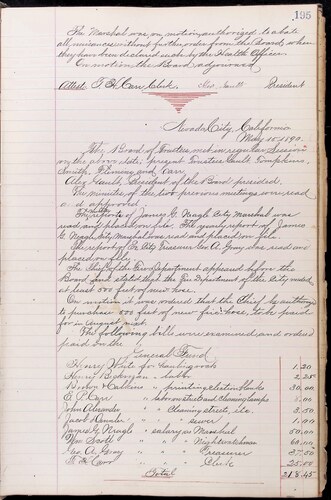 195
The Marshal was on motion authorized to abate
all nuisances without further order from the Board when
they have been declared such by the Health Officer.
On motion the Board adjourned
Attest T. H. Carr, Clerk. President
Nevada City, California
May 15 1890.
The Board of Trustees met in regular Session
on the above date; present Trustees Gault, Tompkins,
Smith, Fleming and Carr.
Alex Gault, President of the Board presided.
The minutes of the two previous meetings were read
and approved
The reports of James G. Neagle City Marshal was
read and placed on file. The report of James
G. Neagle City Marshal was read and placed on file
The report of City Treasurer Geo. A. Gray was read and
placed on file
The Chief of the Fire Department appeared before the
Board and stated that the Fire Department of the City needed
at least 500 feet of new hose.
On motion it was ordered that the Chief be authorized
to purchase 500 feet of new fire hose, to be paid
for in August next.
The following bills were examined and ordered
paid On the
General Fund
Henry White for 1.20
Henry " " 2.25
Brown & Calkins " printing election blanks 30.00
E. P. Carr " labor on streets and cleaning lamps
John Alexander " " Cleaning streets, etc. 3.50
Jacob " " sewer 1.00
James G. Neagle " salary as Marshal 50.00
Wm Scott " " Nightwatchman 60.00
Geo. A. Gray " " Treasurer 37.50
T. H. Carr " " Clerk 25.00
Total 218.45